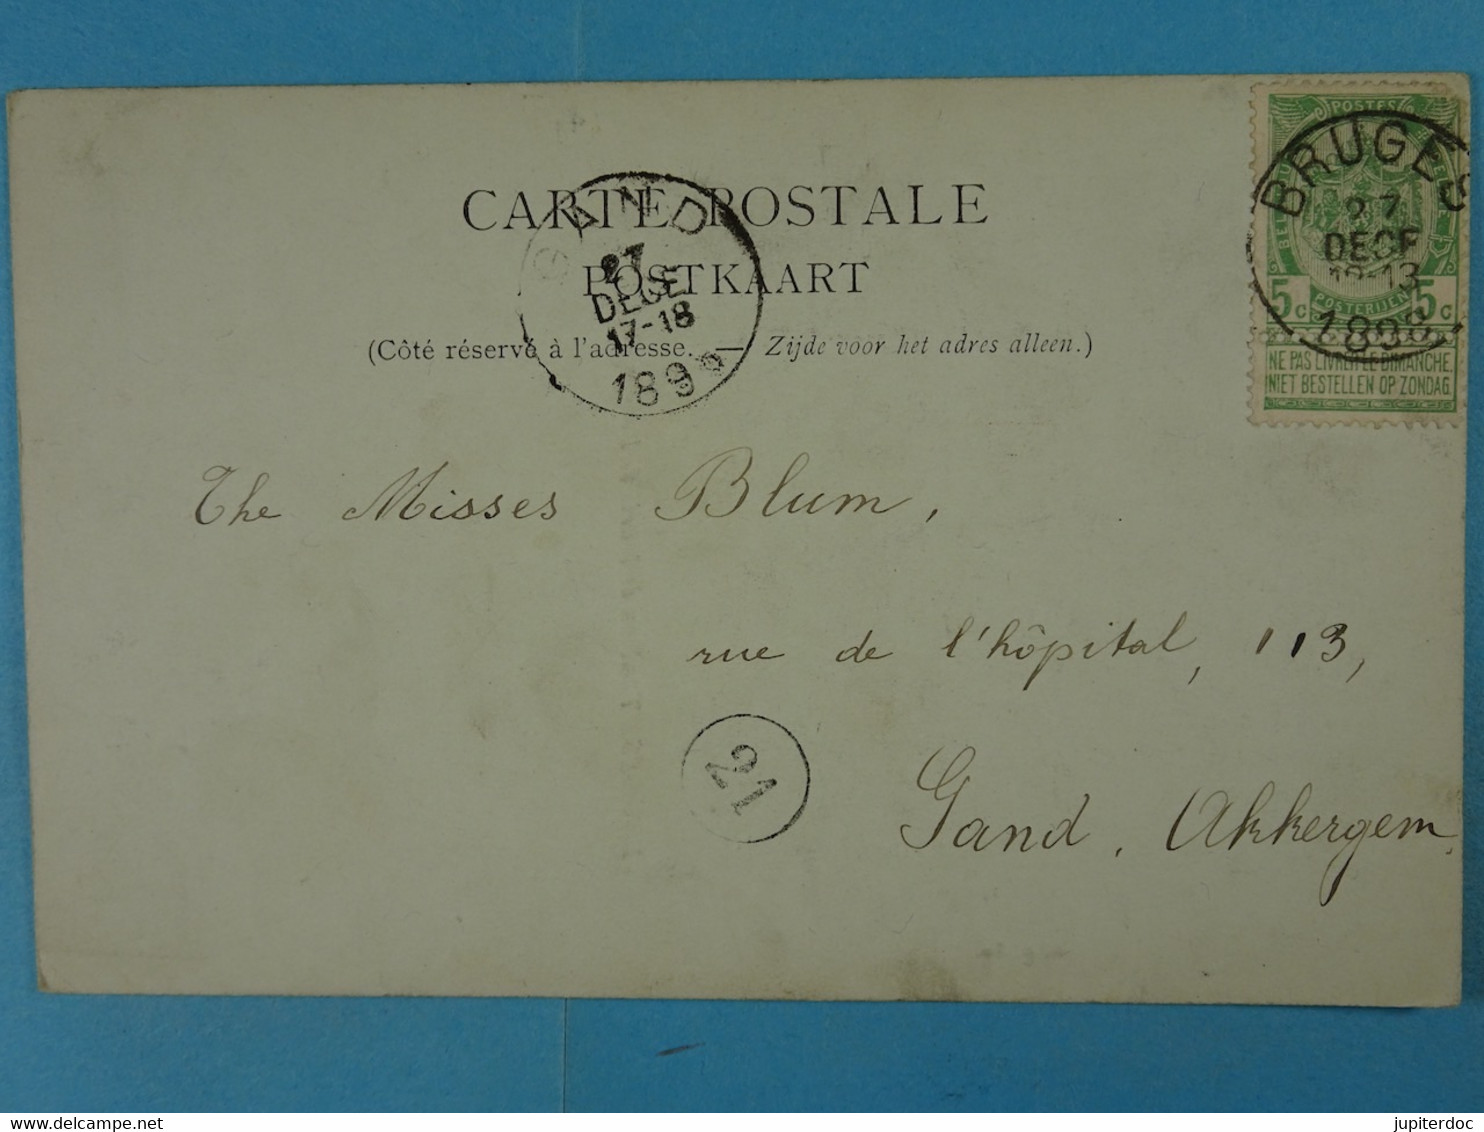 CARTE POSTALE
POSTKAART
(Côté réservé à l'adresse. — Zijde voor het adres alleen.)
GAND
27
DECE
17-18
189
POSTES
BRUGES
27
DECE
12-13
1898
5c POSTERIJEN 5c
NE PAS LIVRER LE DIMANCHE.
NIET BESTELLEN OP ZONDAG.
The Misses Blum,
rue de l'hôpital, 113,
21
Gand, Akkergem.
delcampe.net
jupiterdoc